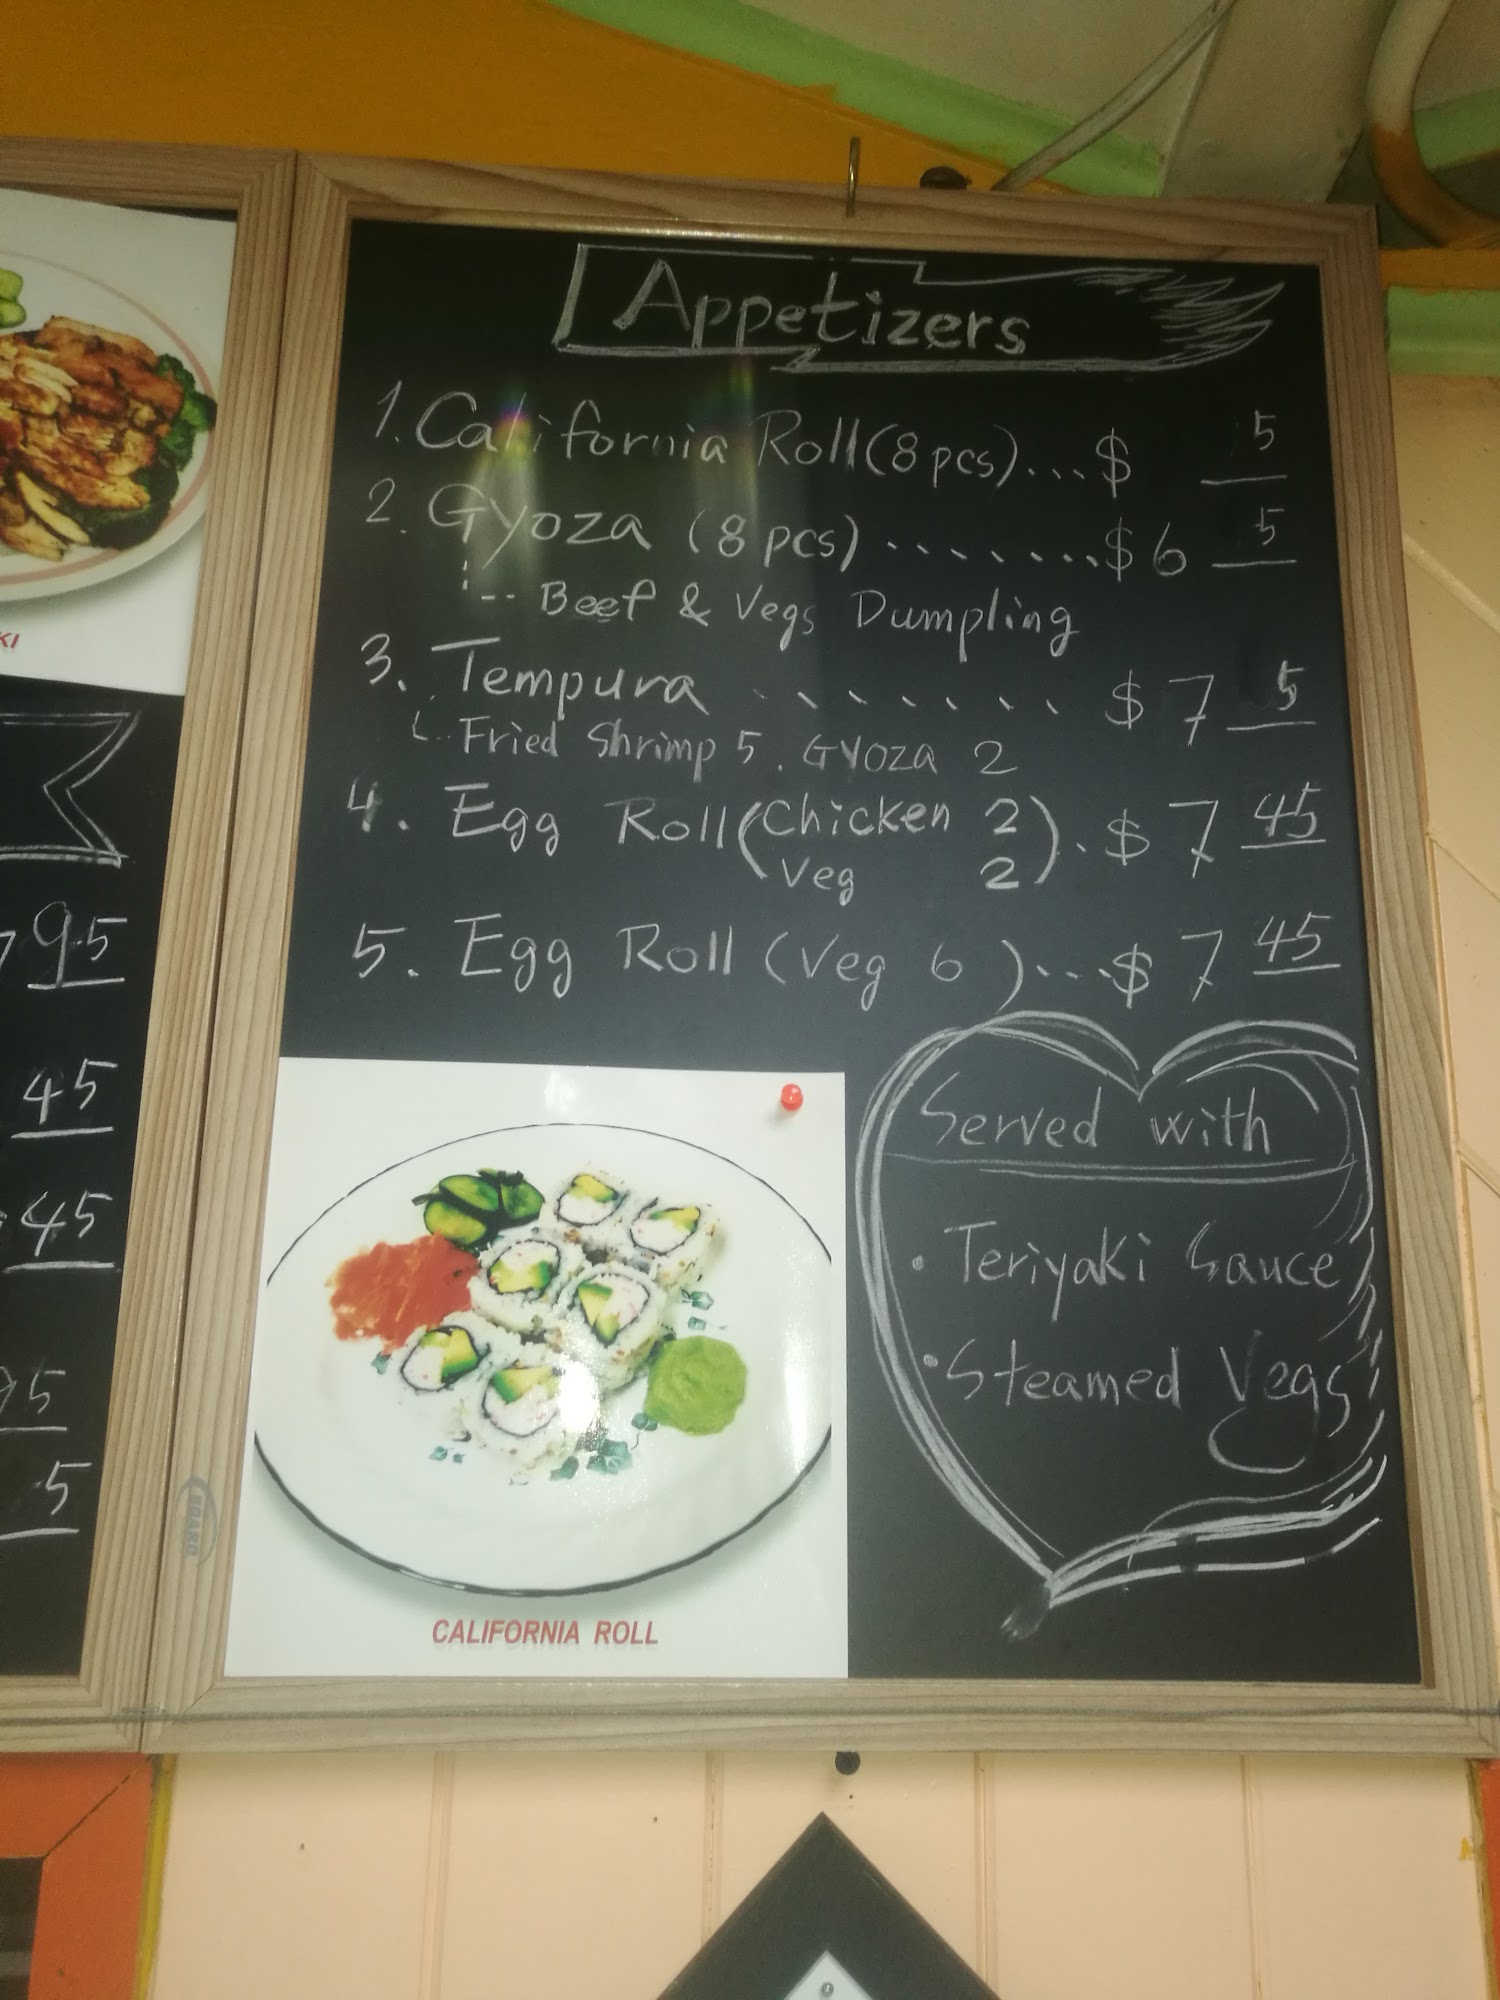 Appetizers
1. California Roll (8 pcs)...$ 5
2. Gyoza (8 pcs)........$6 5
Beef & Vegs Dumpling
3. Tempura ........ $7 5
Fried Shrimp 5. Gyoza 2
4. Egg Roll (Chicken 2 Veg 2). $7 45
5. Egg Roll (Veg 6)...$7 45
Served with
• Teriyaki Sauce
• Steamed Vegs
CALIFORNIA ROLL
KI
95
45
45
5
5